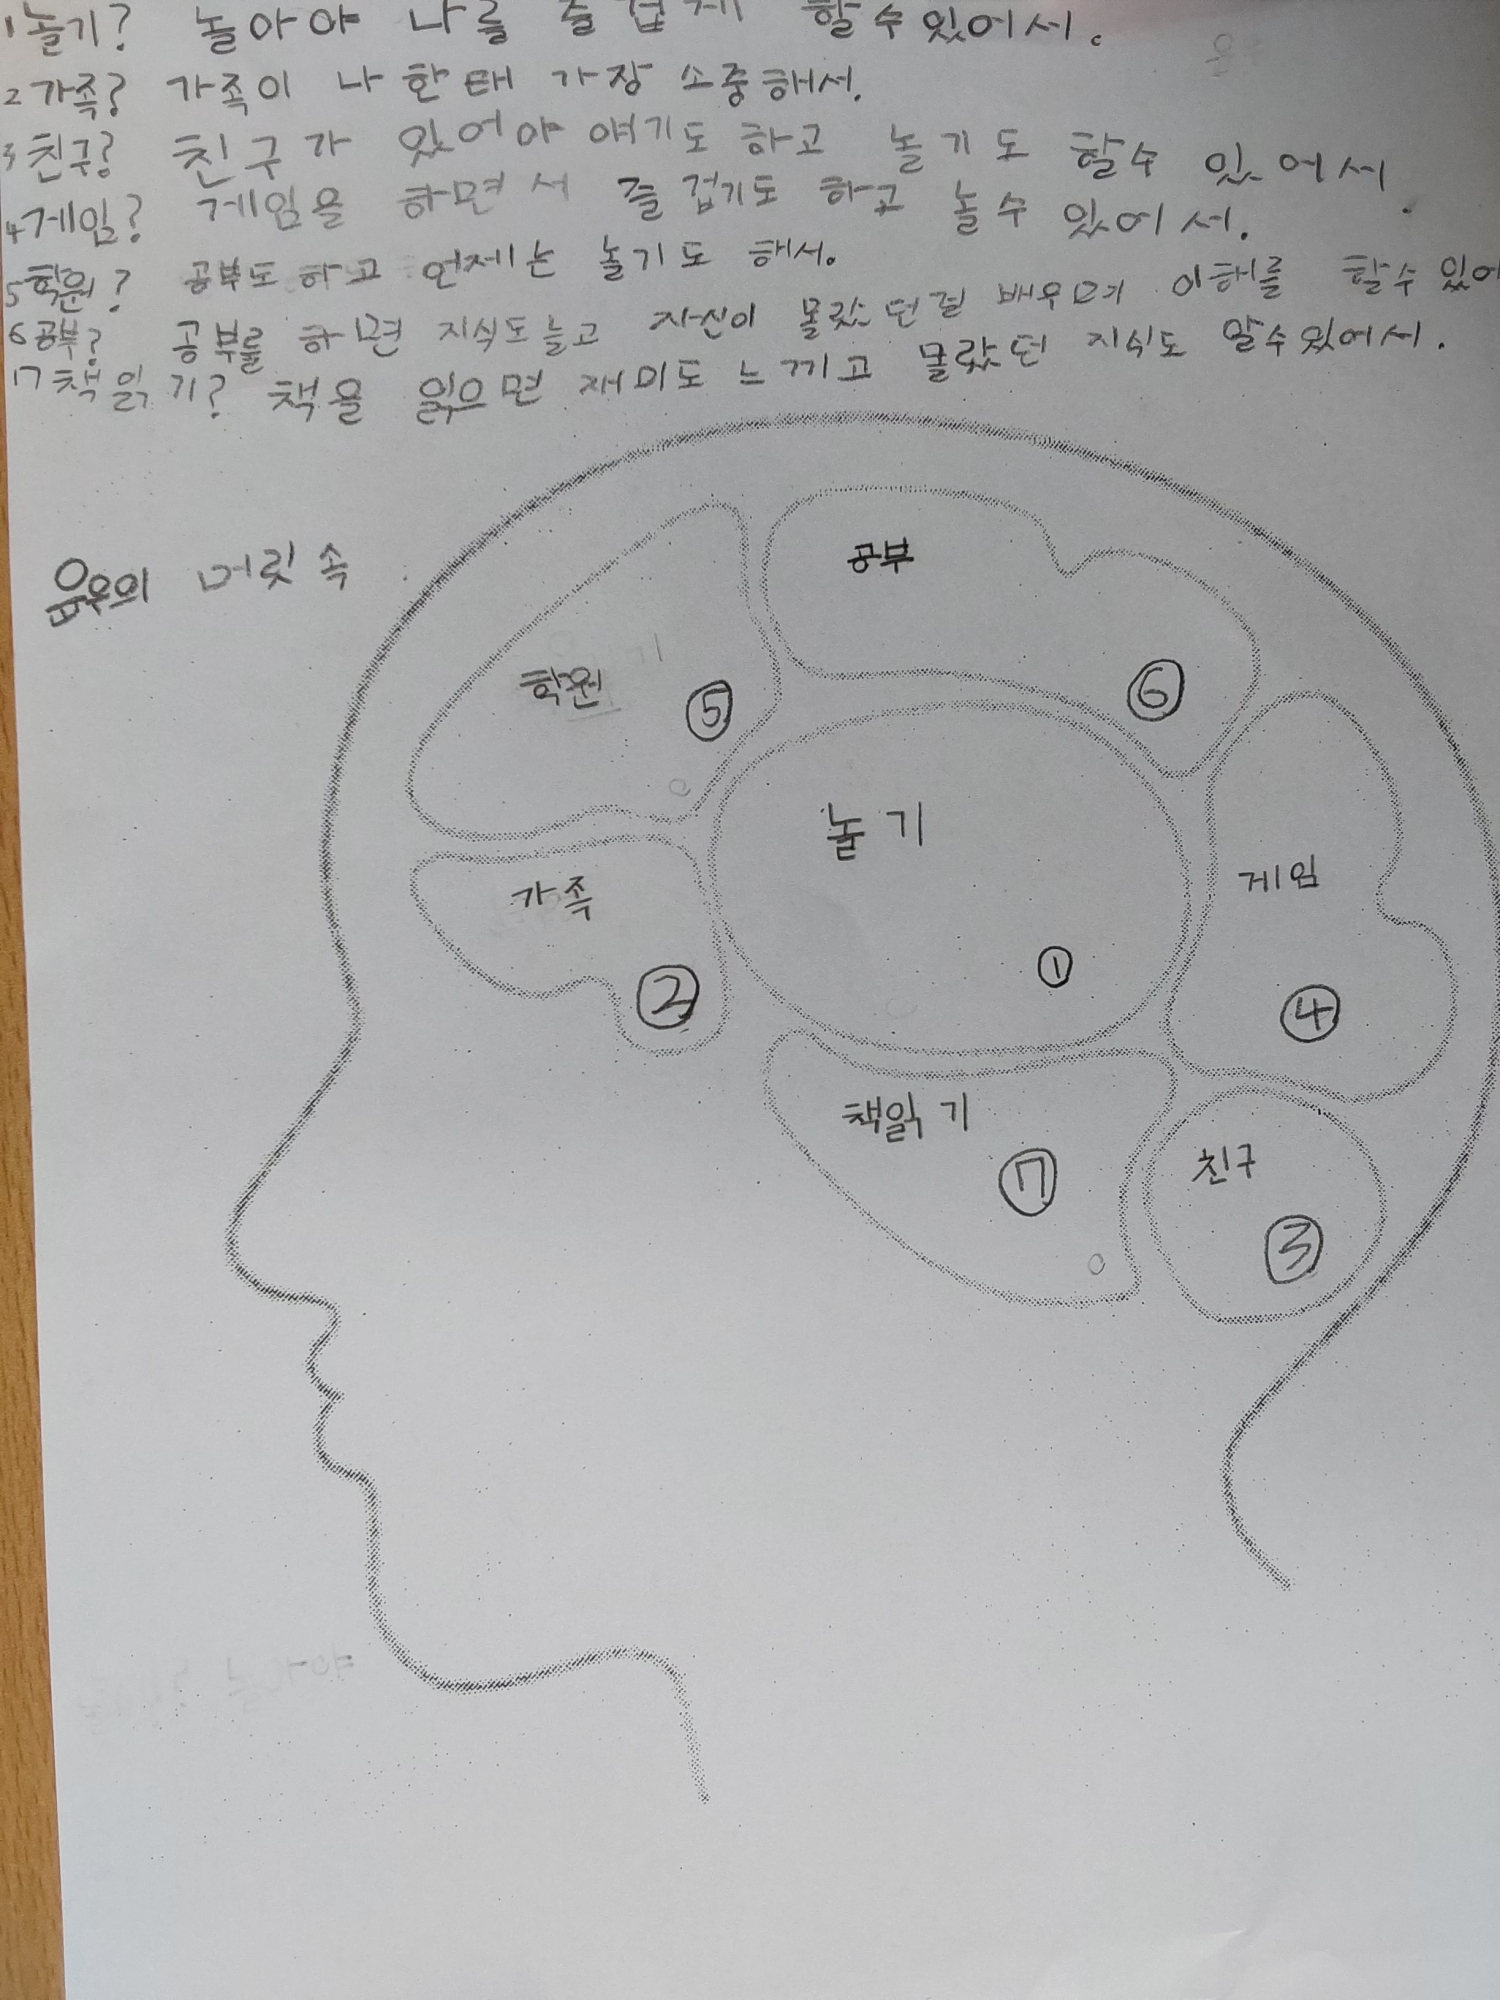 1 놀기? 놀아야 나를 즐겁게 할수있어서.
2 가족? 가족이 나한태 가장 소중해서.
3 친구? 친구가 있어야 얘기도 하고 놀기도 할수 있어서.
4 게임? 게임을 하면서 즐겁기도 하고 놀수 있어서.
5 학원? 공부도 하고 언제는 놀기도 해서.
6 공부? 공부를 하면 지식도늘고 자신이 몰랐던걸 배우며 이해를 할수 있어
7 책읽기? 책을 읽으면 재미도 느끼고 몰랐던 지식도 알수있어서.
머릿속
공부
학원
⑥
⑤
놀기
게임
가족
①
②
④
책읽기
친구
⑦
③